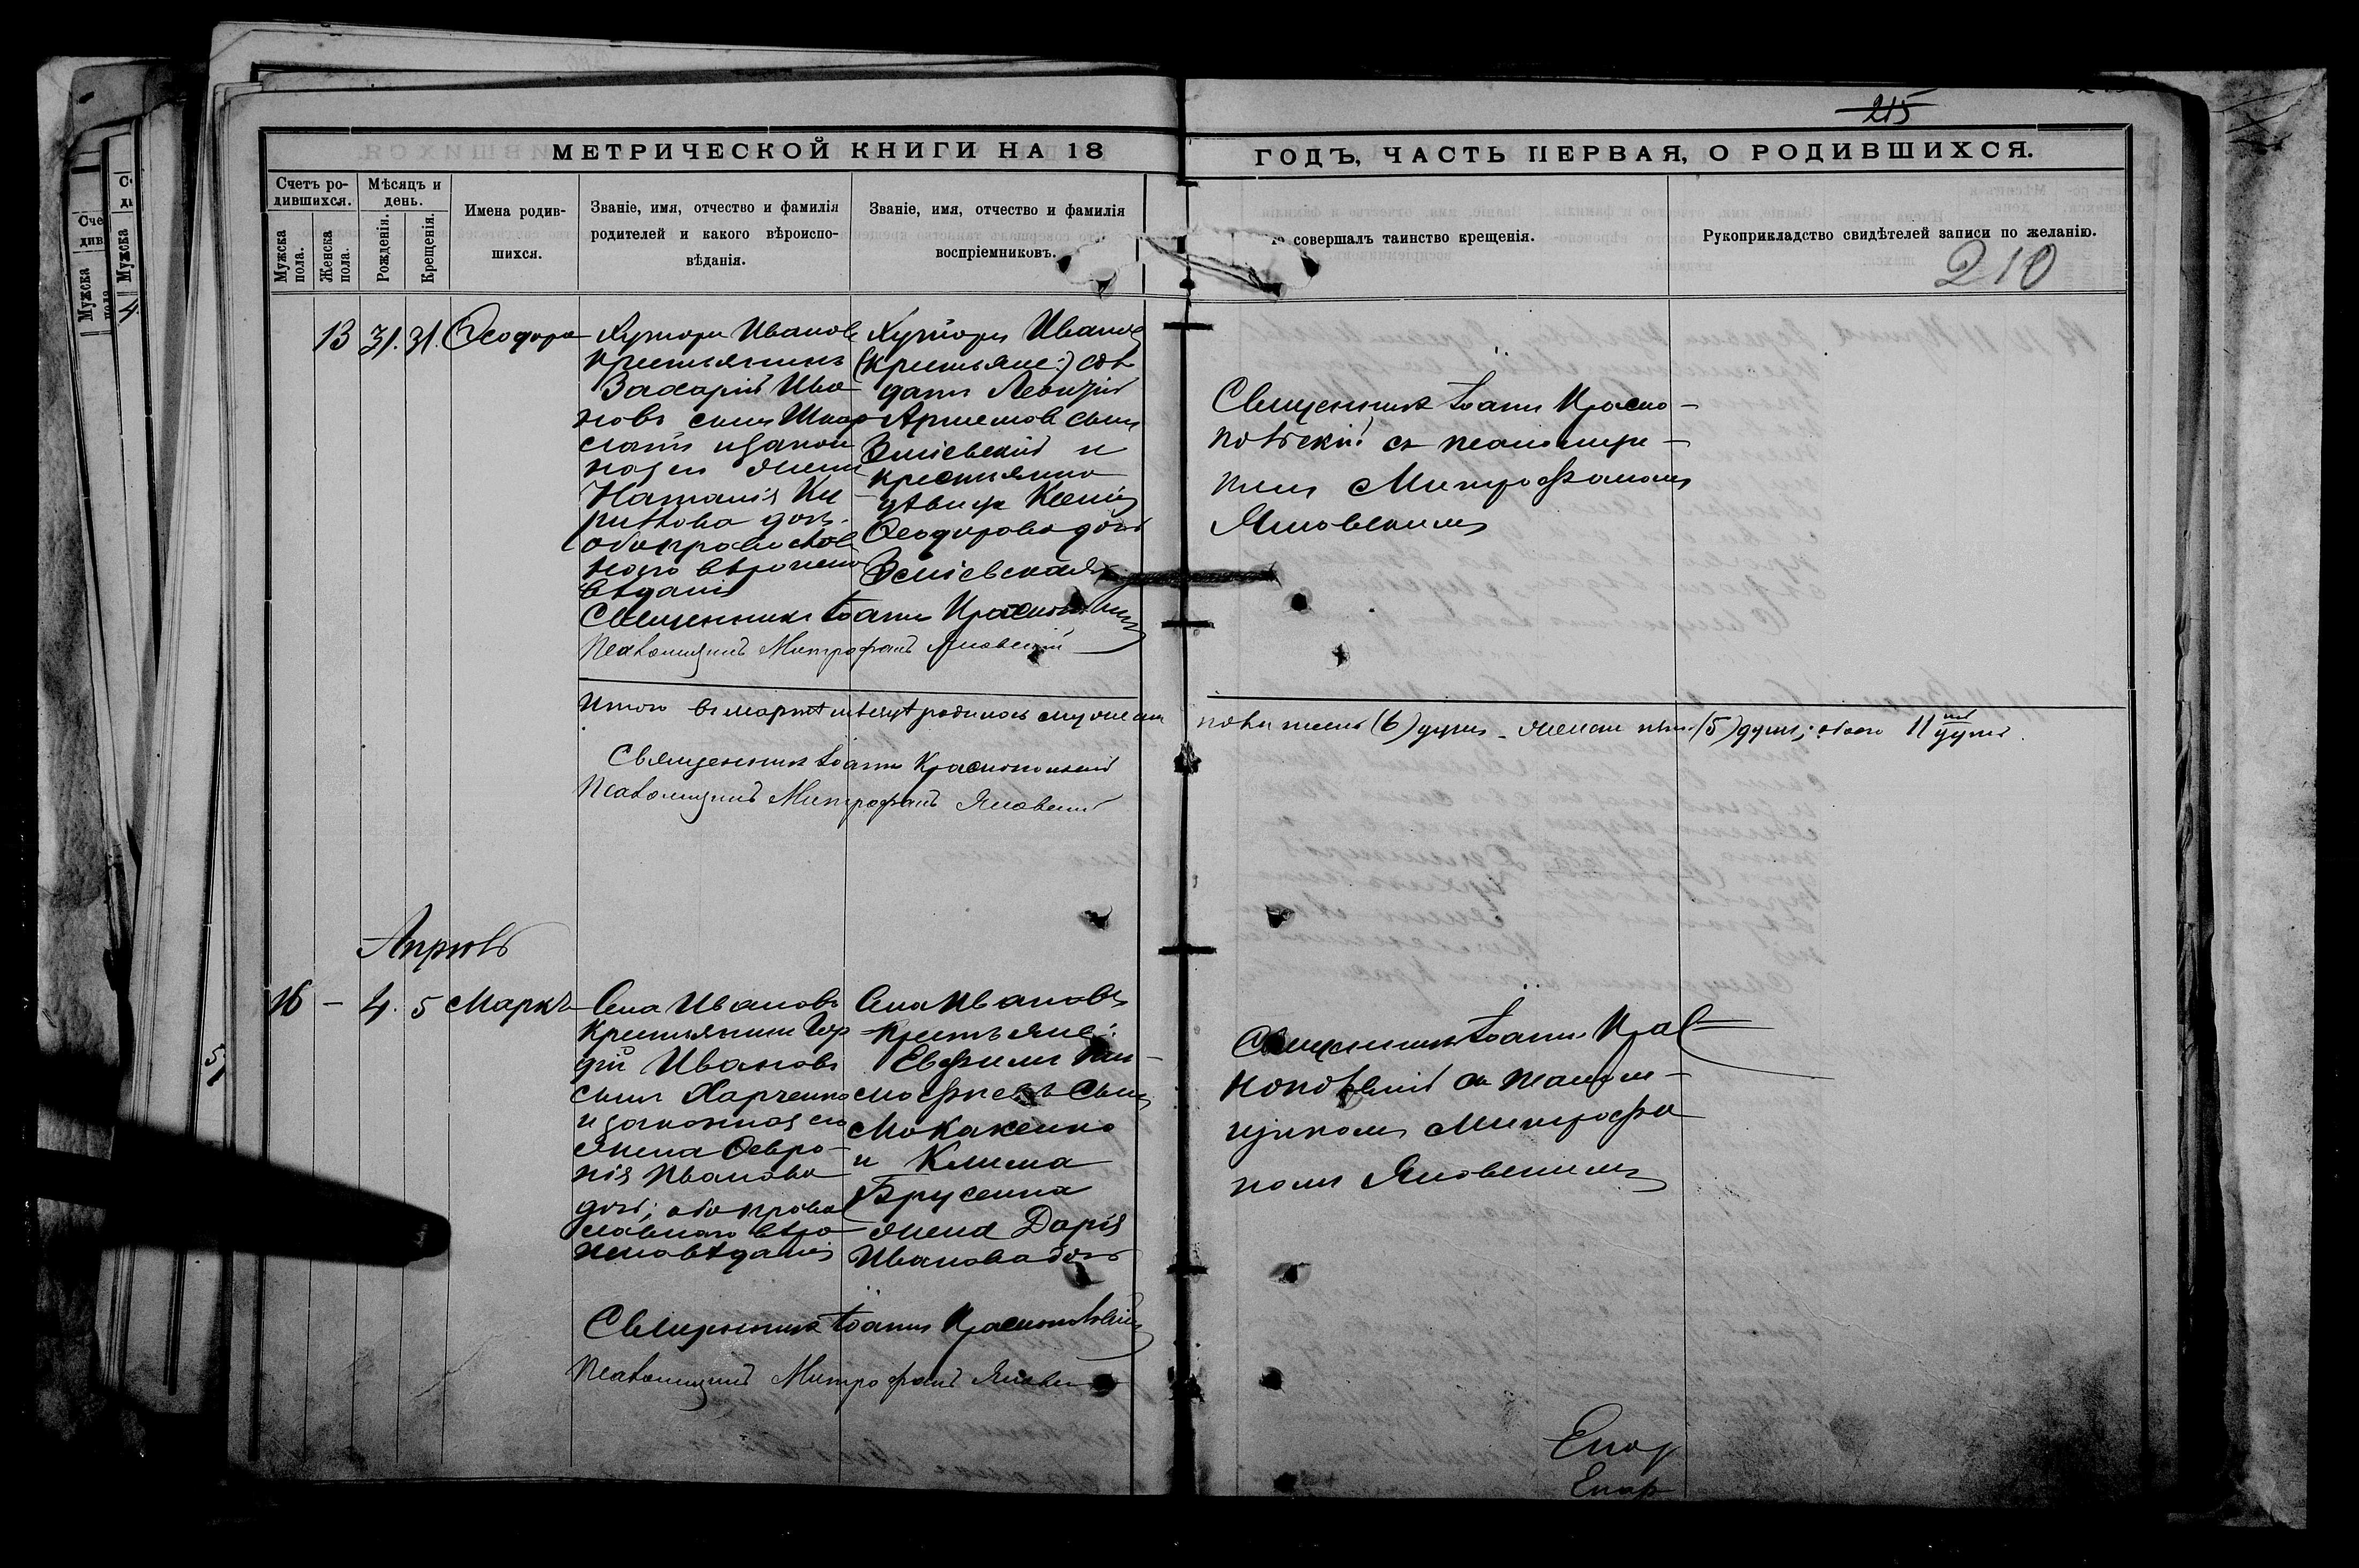 215
МЕТРИЧЕСКОЙ КНИГИ НА 18
ГОДЪ, ЧАСТЬ ПЕРВАЯ, О РОДИВШИХСЯ.
Счетъ ро-
дившихся.
Мужска
пола.
Женска
пола.
Мѣсяцъ и
день.
Рожденія.
Крещенія.
Имена родив-
шихся.
Званіе, имя, отчество и фамилія
родителей и какого вѣроиспо-
вѣданія.
Званіе, имя, отчество и фамилія
воспріемниковъ.
совершалъ таинство крещенія.
Рукоприкладство свидѣтелей записи по желанію.
210
13 31. 31. Ѳеодора
Хутора Иванов
крестьянинъ
Захарій Ива
новъ сынъ
и закон
жена
Наталія Ки
рилова доч.
оба православ
наго вѣроиспо
вѣданія
Хутора Иванов
(крестьяне:) сол
датъ
Артемов сынъ
Зміевскій и
крестьянка
дѣвица Ксенія
Ѳеодорова дочь
Зміевская
Священникъ Іоаннъ Краснопольскій
Псаломщикъ Митрофанъ Яновскій
Священникъ Іоаннъ Красно-
польскій съ псаломщи-
комъ Митрофаномъ
Яновскимъ
Итого въ мартѣ мѣсяцѣ родилось мужеска
пола шесть (6) душъ - женска пять (5) душъ; обоего 11 душъ.
Священникъ Іоаннъ Краснопольскій
Псаломщикъ Митрофанъ Яновскій
Апрѣль
16 - 4. 5 Маркъ
Села Иванов
крестьянинъ Гор
дій Ивановъ
сынъ Харченко
и законная его
жена Февро-
нія Иванова
доч; оба правос
лавнаго вѣро
исповѣданія
Села Ивановъ
крестьяне:
Евфимъ Ти-
мофеевъ сынъ
Макаренко
и Клима
Брусенка
жена Дарія
Иванова доч
Священникъ Іоаннъ Крас-
нопольскій съ псалом-
щикомъ Митрофа
номъ Яновскимъ
Священникъ Іоаннъ Краснопольскій
Псаломщикъ Митрофанъ